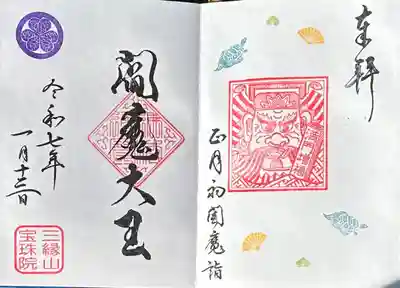 奉拝
正月初閻魔詣
閻魔大王
令和七年
一月十三日
三縁山
宝珠院